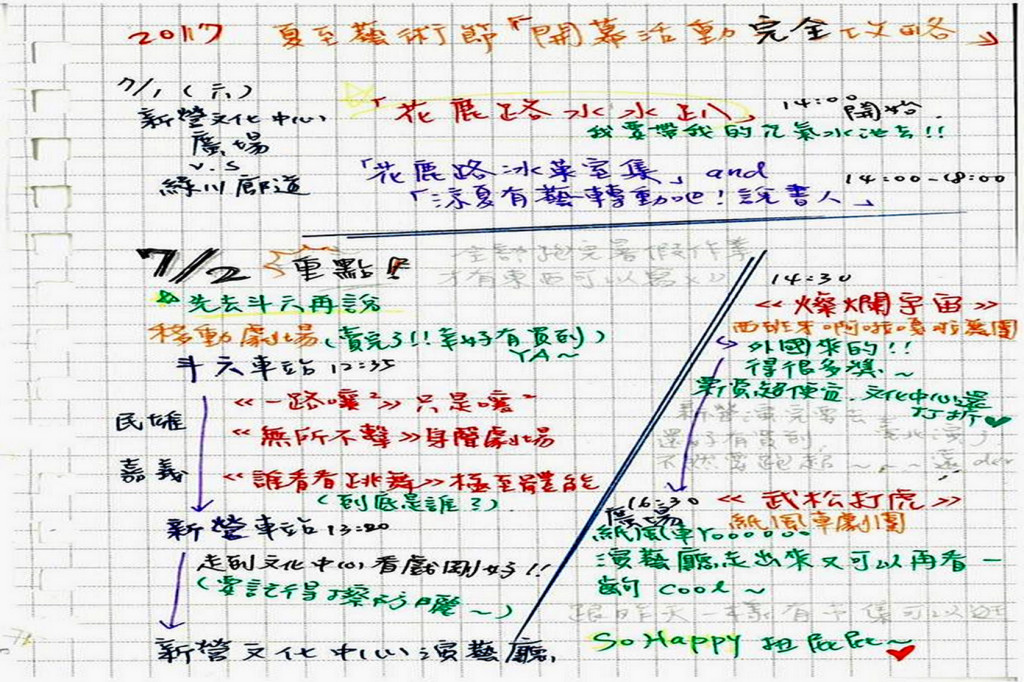 2017 夏至藝術節「開幕活動完全攻略」
7/1 (六)
新營文化中心
廣場
v.s
綠川廊道
「花鹿路水水趴」 14:00 開始
我要帶我的充氣水池去!!
「花鹿路冰菓室集」 and
「涼夏有藝轉動吧!說書人」
14:00-18:00
7/2 重點!
先去斗六再說
移動劇場(賣完了!!幸好有買到)
YA~
斗六車站 12:35
民雄
嘉義
《一路嚷²》只是嚷²
《無所不聲》身聲劇場
《誰看看跳舞》極至體能
(到底是誰?)
新營車站 13:20
走到文化中心看戲剛好!!
(要記得擦防曬~)
新營文化中心演藝廳
全部跑完暑假作業
才有東西可以寫
14:30
《燦爛宇宙》
西班牙啊哦嘎啦劇團
外國來的!!
得很多獎~
票價超便宜.文化中心還
打折
新營演完要去
臺北演了
還好有買到
不然要跑超~~遠 der
16:30
廣場
《武松打虎》
紙風車劇團
紙風車Yoooooo
演藝廳走出來又可以再看一
齣 cool~
跟昨天一樣有市集可以逛
So Happy 扭屁屁~